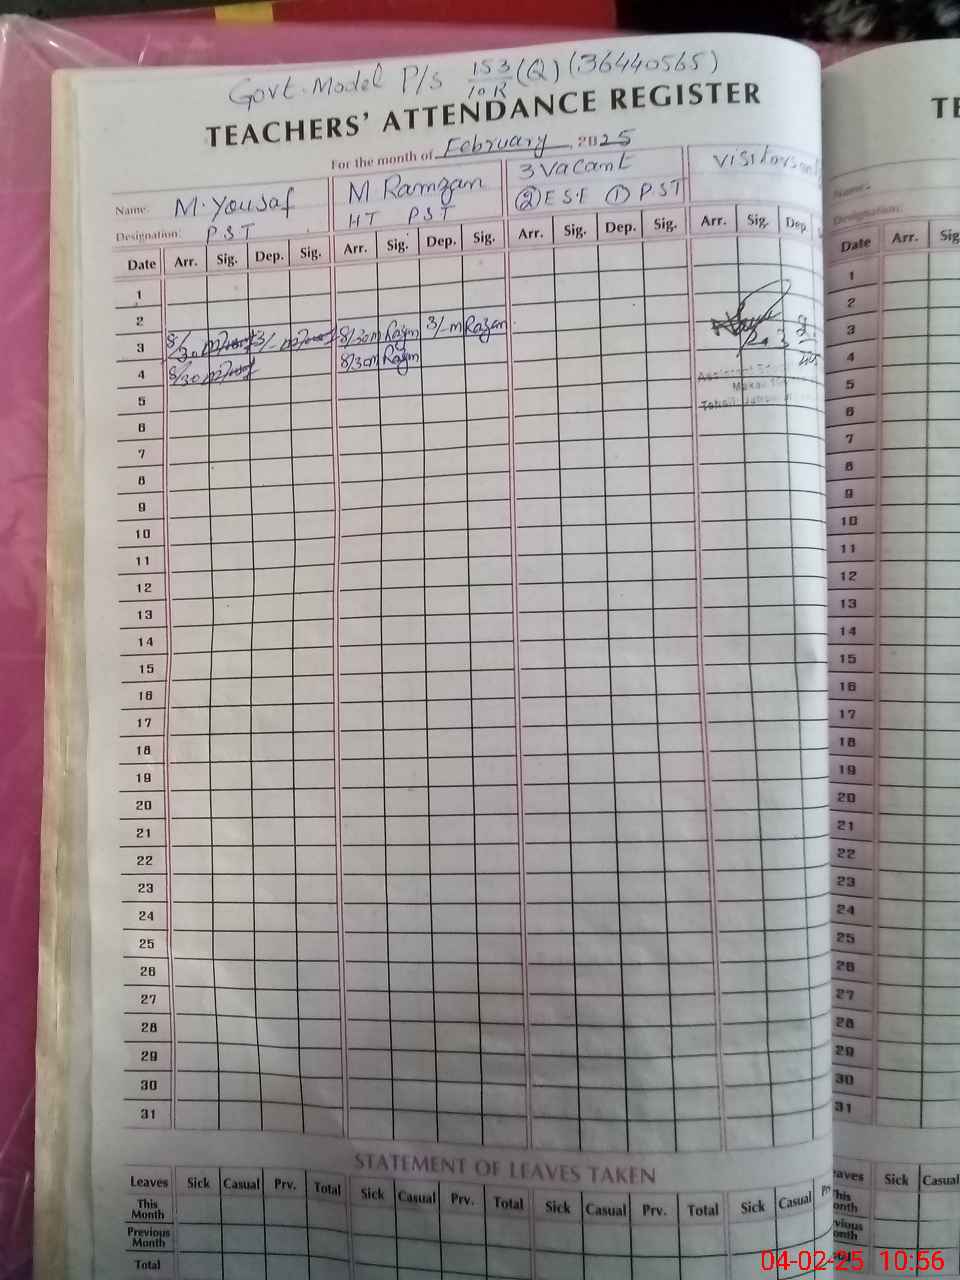 Govt. Model P/s 153/10R (Q) (36440565)
TEACHERS' ATTENDANCE REGISTER
For the month of February, 2025
Name: M. Yousaf M Ramzan 3 Vacant visitors
Designation: PST HT PST ② ESE ① PST
Date Arr. Sig. Dep. Sig. Arr. Sig. Dep. Sig. Arr. Sig. Dep. Sig. Arr. Sig. Dep.
1
2
3 8/30 3/- 8/30 m Razm 3/- m Razan
4 8/30 8/30 m Razm
5
6
7
8
9
10
11
12
13
14
15
16
17
18
19
20
21
22
23
24
25
26
27
28
29
30
31
STATEMENT OF LEAVES TAKEN
Leaves Sick Casual Prv. Total Sick Casual Prv. Total Sick Casual Prv. Total Sick Casual
This Month
Previous Month
Total
TE
Name:
Designation:
Date Arr. Sig
1
2
3
4
5
6
7
8
9
10
11
12
13
14
15
16
17
18
19
20
21
22
23
24
25
26
27
28
29
30
31
Sick Casual
04-02-25 10:56